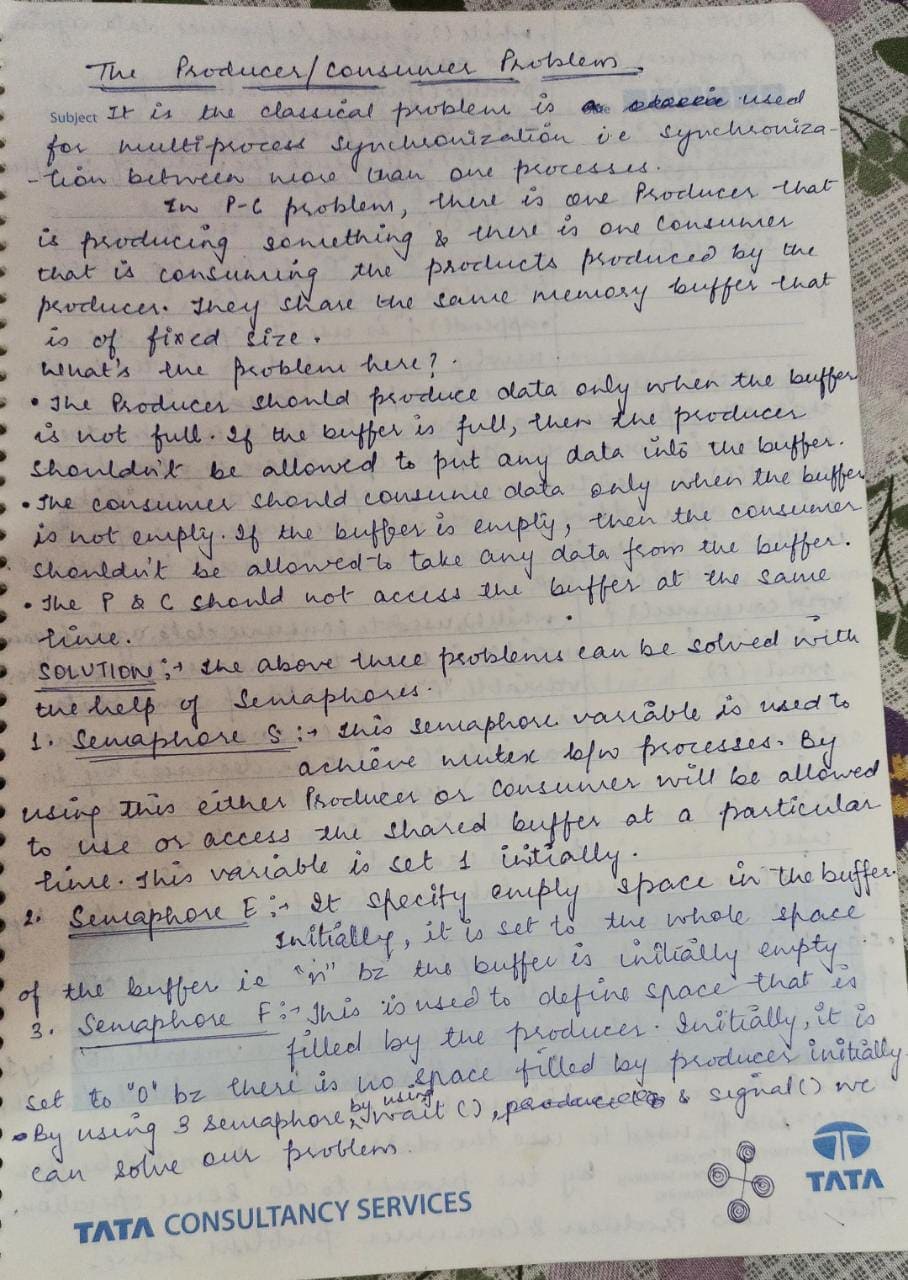 The Producer/Consumer Problem.
Subject It is the classical problem is used
for multiprocess synchronization i.e synchroniza-
-tion between more than one processes.
In P-C problem, there is one Producer that
is producing something & there is one Consumer
that is consuming the products produced by the
producer. They share the same memory buffer that
is of fixed size.
What's the problem here?.
• The Producer should produce data only when the buffer
is not full. If the buffer is full, then the producer
shouldn't be allowed to put any data into the buffer.
• The consumer should consume data only when the buffer
is not empty. If the buffer is empty, then the consumer
shouldn't be allowed to take any data from the buffer.
• The P & C should not access the buffer at the same
time.
SOLUTION :→ The above three problems can be solved with
the help of Semaphores.
1. Semaphore S :→ This semaphore variable is used to
achieve mutex b/w processes. By
using this either Producer or Consumer will be allowed
to use or access the shared buffer at a particular
time. This variable is set 1 initially.
2. Semaphore E :→ It specify empty space in the buffer.
Initially, it is set to the whole space
of the buffer ie "n" bz the buffer is initially empty
3. Semaphore F :→ This is used to define space that is
filled by the producer. Initially, it is
set to "0" bz there is no space filled by producer initially.
• By using 3 semaphore, by using wait (), & signal() we
can solve our problem.
TATA CONSULTANCY SERVICES
TATA